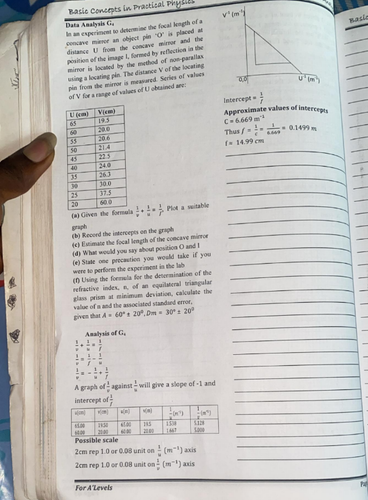 Basic Concepts in Practical Physics
Data Analysis G₄
In an experiment to determine the focal length of a
concave mirror an object pin 'O' is placed at
distance U from the concave mirror and the
position of the image I, formed by reflection in the
mirror is located by the method of non-parallax
using a locating pin. The distance V of the locating
pin from the mirror is measured. Series of values
of V for a range of values of U obtained are:
U (cm) V(cm)
65 19.5
60 20.0
55 20.6
50 21.4
45 22.5
40 24.0
35 26.3
30 30.0
25 37.5
20 60.0
(a) Given the formula 1/v + 1/u = 1/f. Plot a suitable
graph
(b) Record the intercepts on the graph
(c) Estimate the focal length of the concave mirror
(d) What would you say about position O and I
(e) State one precaution you would take if you
were to perform the experiment in the lab
(f) Using the formula for the determination of the
refractive index, n, of an equilateral triangular
glass prism at minimum deviation, calculate the
value of n and the associated standard error,
given that A = 60° ± 20⁰, Dm = 30° ± 20⁰
Analysis of G₄
1/v + 1/u = 1/f
1/v = 1/f - 1/u
1/v = - 1/u + 1/f
A graph of 1/v against 1/u will give a slope of -1 and
intercept of 1/f
u(cm) v(cm) u(m) v(m) 1/u (m⁻¹) 1/v (m⁻¹)
65.00 19.50 1.538 5.128
60.00 20.00 1.667 5.000
Possible scale
2cm rep 1.0 or 0.08 unit on 1/u (m⁻¹) axis
2cm rep 1.0 or 0.08 unit on 1/v (m⁻¹) axis
For A'Levels
V⁻¹ (m⁻¹)
0,0
U⁻¹ (m⁻¹)
Intercept = 1/f
Approximate values of intercepts
C = 6.669 m⁻¹
Thus f = 1/c = 1/6.669 = 0.1499 m
f = 14.99 cm
Basic